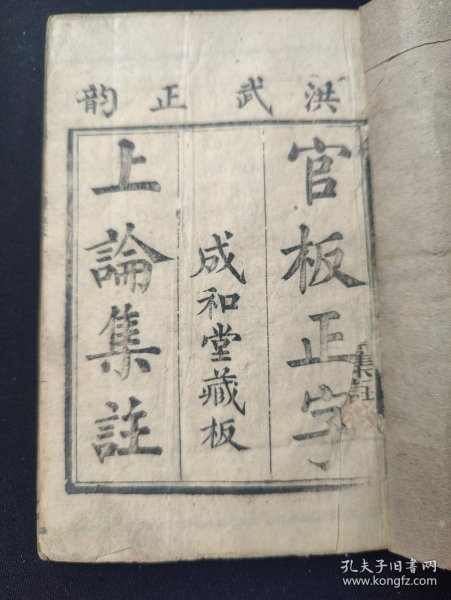 洪武正韵
官板正字
成和堂藏板
上論集註
集註
孔夫子旧书网
www.kongfz.com